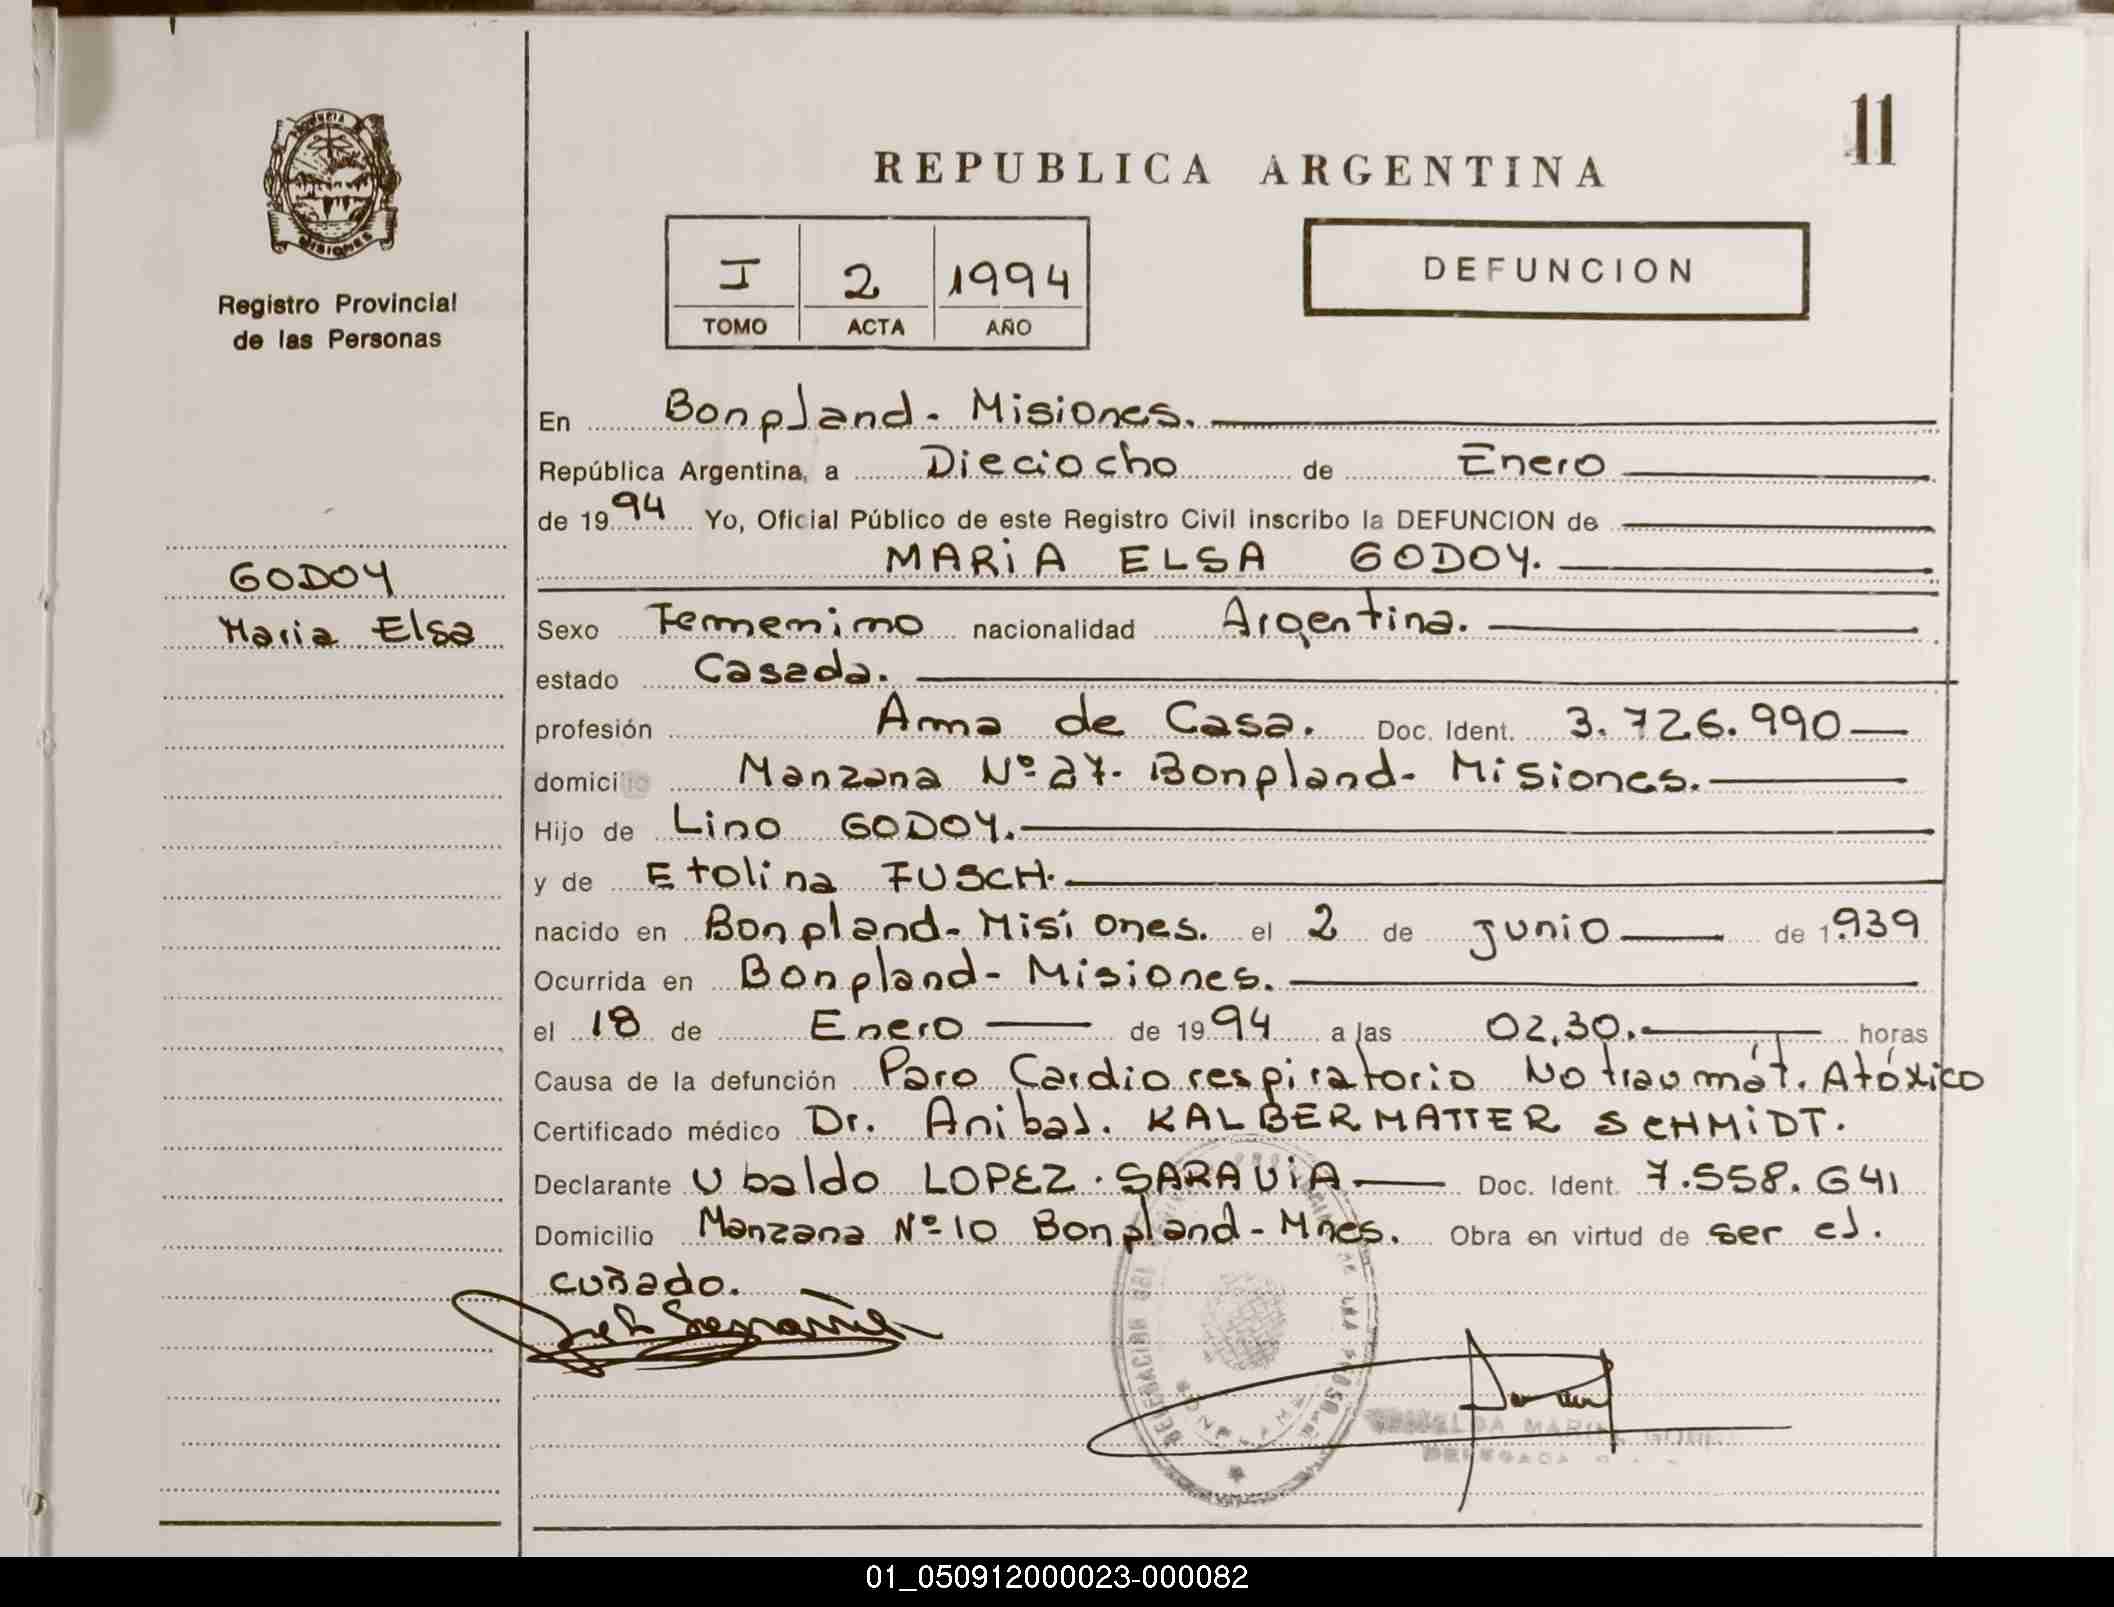 11
REPUBLICA ARGENTINA
PROVINCIA DE
MISIONES
Registro Provincial
de las Personas
I 2 1994
TOMO ACTA AÑO
DEFUNCION
En Bonpland - Misiones.
República Argentina, a Dieciocho de Enero
de 1994 Yo, Oficial Público de este Registro Civil inscribo la DEFUNCION de
MARIA ELSA GODOY.
GODOY
Maria Elsa
Sexo Femenino nacionalidad Argentina.
estado Casada.
profesión Ama de Casa. Doc. Ident. 3.726.990
domicilio Manzana Nº 27. Bonpland - Misiones.
Hijo de Lino GODOY.
y de Etolina FUSCH.
nacido en Bonpland - Misiones. el 2 de junio de 1.939
Ocurrida en Bonpland - Misiones.
el 18 de Enero de 1994 a las 02,30. horas
Causa de la defunción Paro Cardiorespiratorio No traumát. Atóxico
Certificado médico Dr. Anibal. KALBERMATTER SCHMIDT.
Declarante Ubaldo LOPEZ. SARAVIA Doc. Ident. 7.558.641
Domicilio Manzana Nº 10 Bonpland - Mnes. Obra en virtud de ser el.
cuñado.
DELEGACION DEL DE LAS
01_050912000023-000082